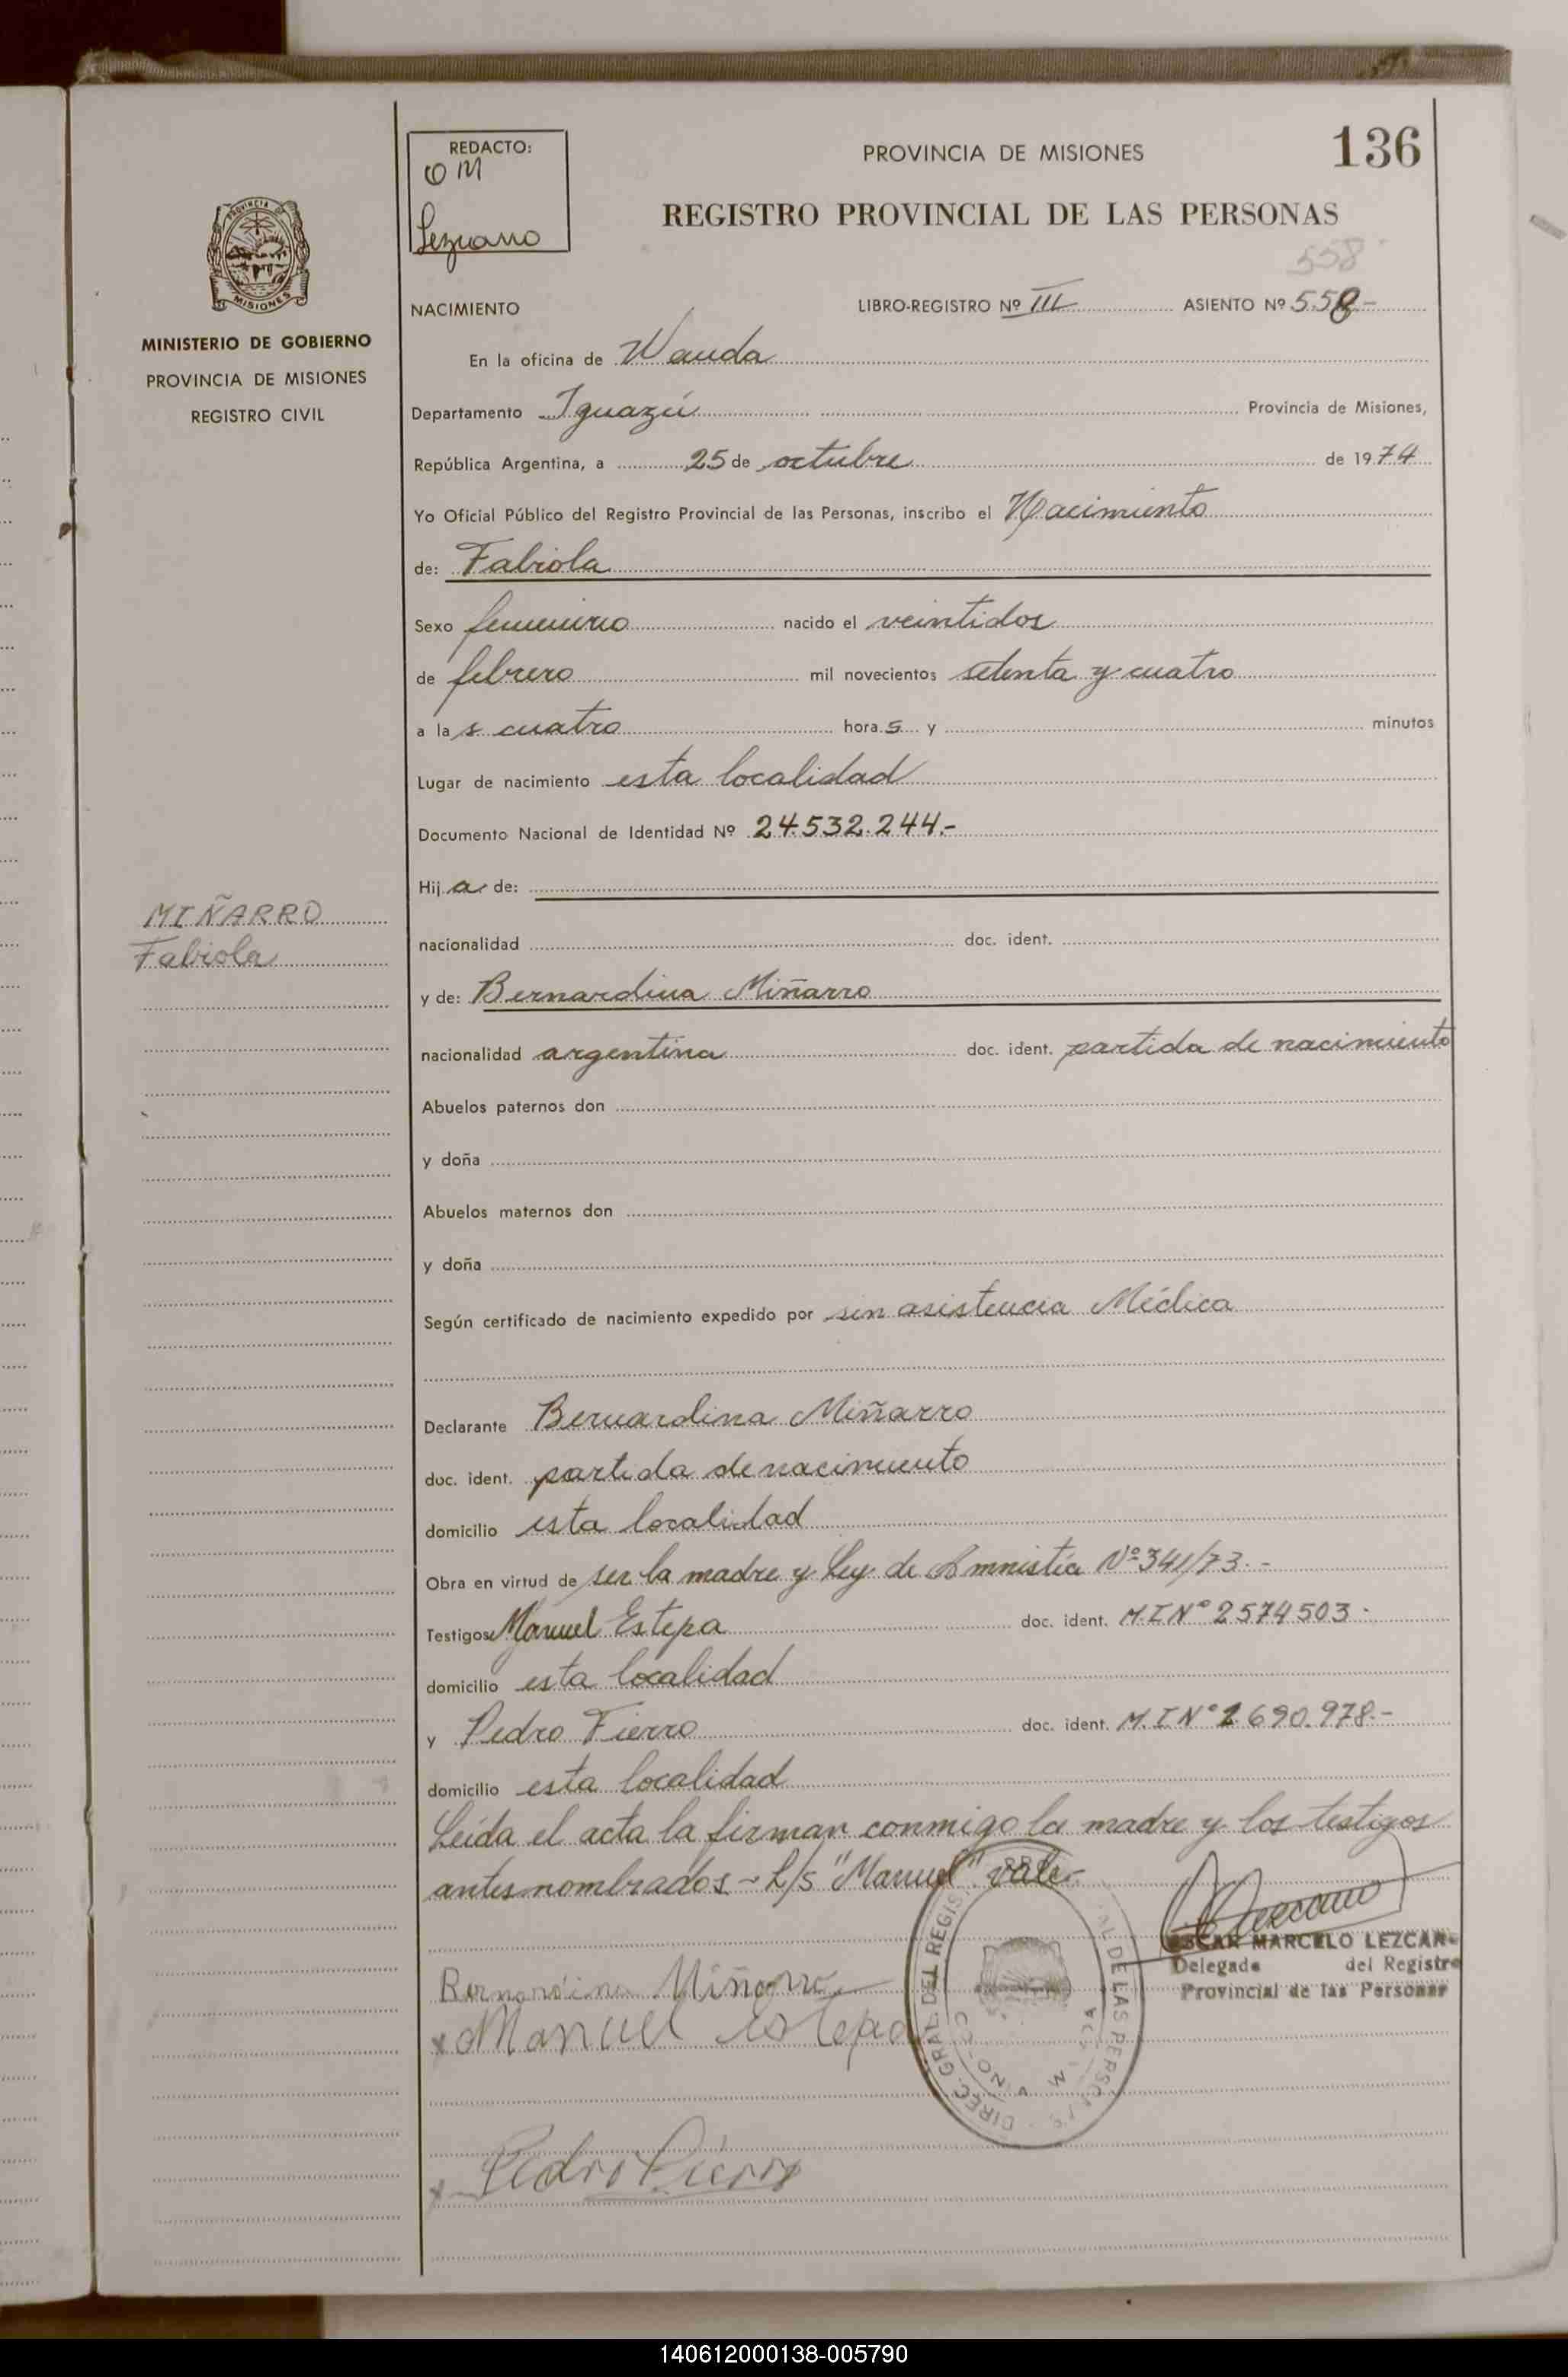 136
REDACTO:
OM
Lezcano
PROVINCIA DE MISIONES
REGISTRO PROVINCIAL DE LAS PERSONAS
558
PROVINCIA DE
MISIONES
MINISTERIO DE GOBIERNO
PROVINCIA DE MISIONES
REGISTRO CIVIL
NACIMIENTO LIBRO-REGISTRO Nº III ASIENTO Nº 558-
En la oficina de Wanda
Departamento Iguazú Provincia de Misiones,
República Argentina, a 25 de octubre de 1974
Yo Oficial Público del Registro Provincial de las Personas, inscribo el Nacimiento
de: Fabiola
Sexo femenino nacido el veintidos
de febrero mil novecientos setenta y cuatro
a las cuatro horas y minutos
Lugar de nacimiento esta localidad
Documento Nacional de Identidad Nº 24.532.244.-
Hija de:
MIÑARRO
Fabiola
nacionalidad doc. ident.
y de: Bernardina Miñarro
nacionalidad argentina doc. ident. partida de nacimiento
Abuelos paternos don
y doña
Abuelos maternos don
y doña
Según certificado de nacimiento expedido por sin asistencia Médica
Declarante Bernardina Miñarro
doc. ident. partida de nacimiento
domicilio esta localidad
Obra en virtud de ser la madre y Ley de Amnistía Nº 341/73.-
Testigos Manuel Estepa doc. ident. M.I Nº 2574503.
domicilio esta localidad
y Pedro Fierro doc. ident. M.I Nº 2.690.978.-
domicilio esta localidad
Leída el acta la firman conmigo la madre y los testigos
antes nombrados - L/s "Manuel" vale.-
Bernardina Miñarro
x Manuel Estepa
x Pedro Fierro
OSCAR MARCELO LEZCANO
Delegado del Registro
Provincial de las Personas
DIREC. GRAL. DEL REGIS AL DE LAS PERSONAS
140612000138-005790